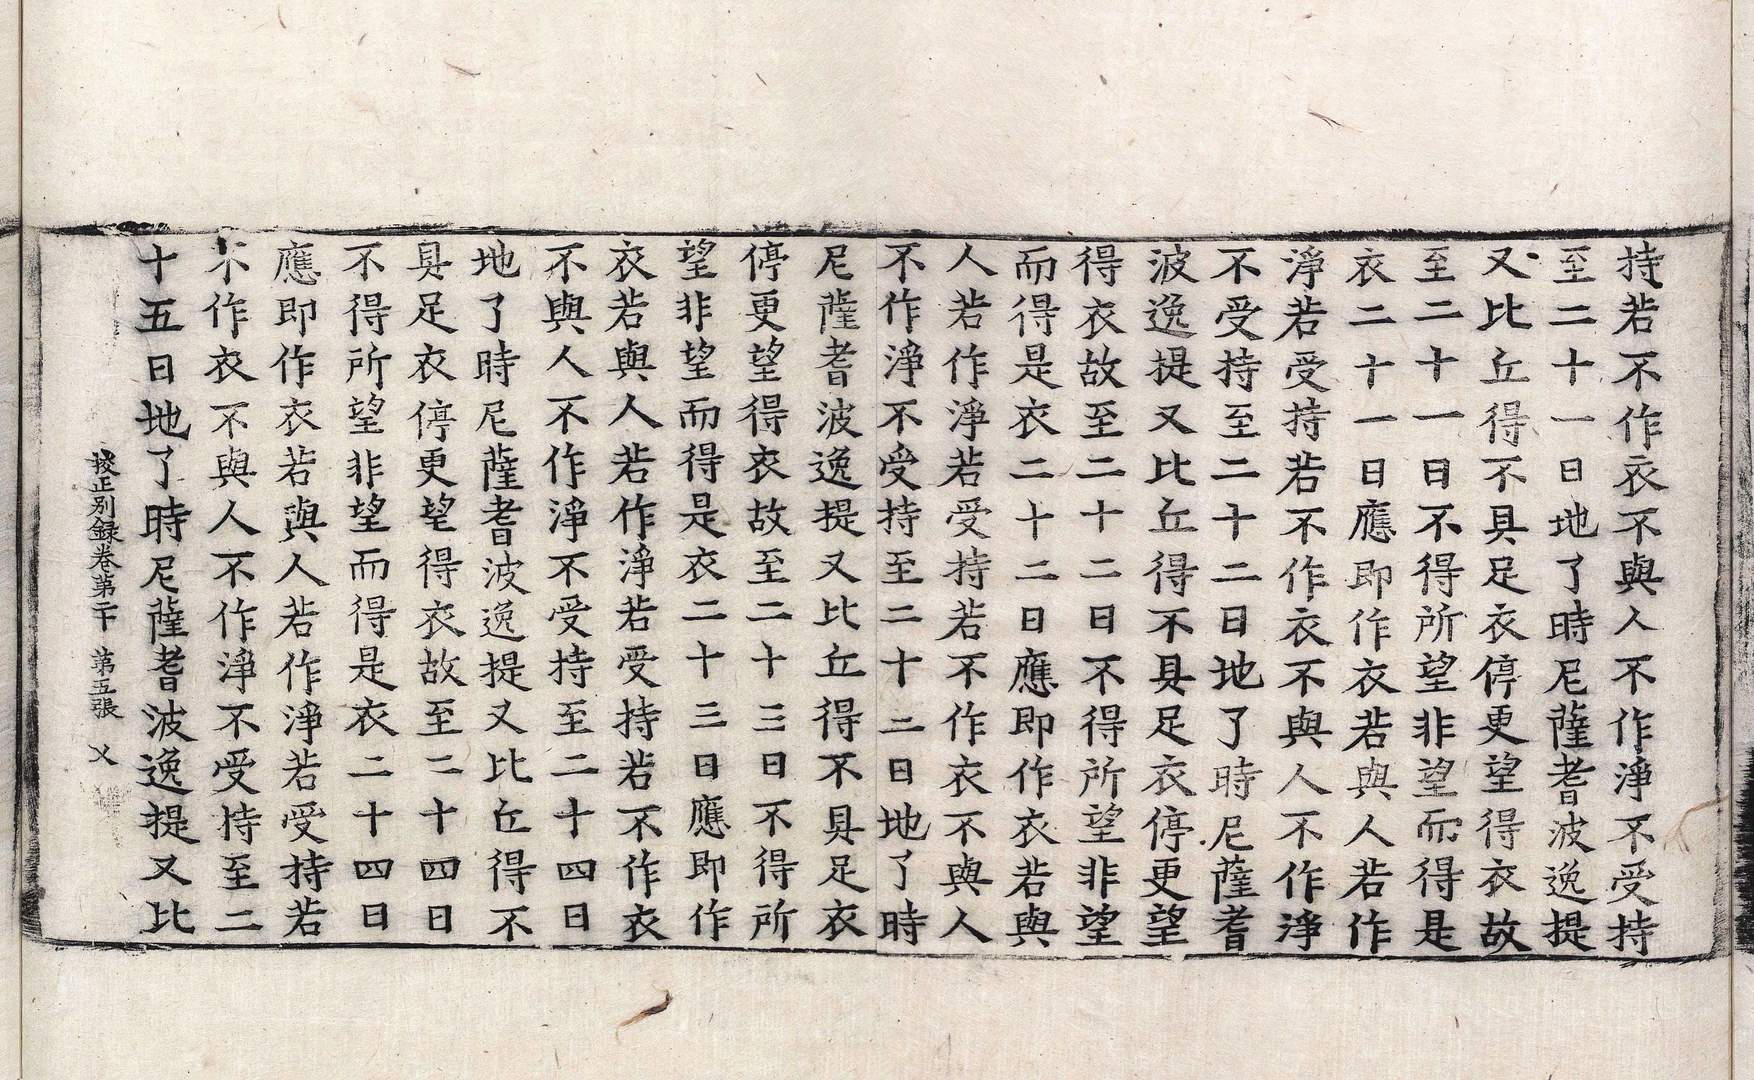 持若不作衣不與人不作淨不受持
至二十一日地了時尼薩耆波逸提
又比丘得不具足衣停更望得衣故
至二十一日不得所望非望而得是
衣二十一日應即作衣若與人若作
淨若受持若不作衣不與人不作淨
不受持至二十二日地了時尼薩耆
波逸提又比丘得不具足衣停更望
得衣故至二十二日不得所望非望
而得是衣二十二日應即作衣若與
人若作淨若受持若不作衣不與人
不作淨不受持至二十二日地了時
尼薩耆波逸提又比丘得不具足衣
停更望得衣故至二十三日不得所
望非望而得是衣二十三日應即作
衣若與人若作淨若受持若不作衣
不與人不作淨不受持至二十四日
地了時尼薩耆波逸提又比丘得不
具足衣停更望得衣故至二十四日
不得所望非望而得是衣二十四日
應即作衣若與人若作淨若受持若
不作衣不與人不作淨不受持至二
十五日地了時尼薩耆波逸提又比
挍正別録卷第二十 第五張 㐅